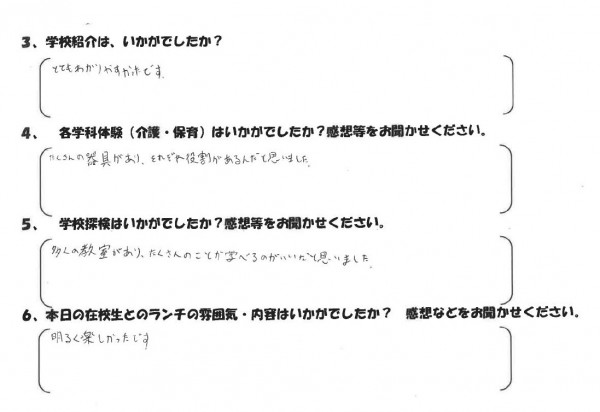 3、学校紹介は、いかがでしたか？
とてもわかりやすかったです。
4、　各学科体験（介護・保育）はいかがでしたか？感想等をお聞かせください。
たくさんの器具があり、それぞれ役割があるんだと思いました。
5、　学校探検はいかがでしたか？感想等をお聞かせください。
多くの教室があり、たくさんのことが学べるのがいいだと思いました。
6、本日の在校生とのランチの雰囲気・内容はいかがでしたか？　感想などをお聞かせください。
明るく楽しかったです